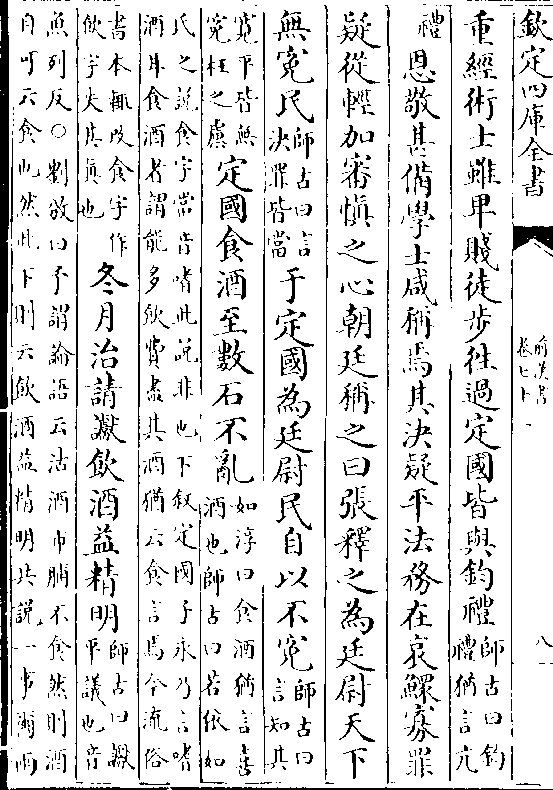 欽定四庫全書
前漢書
卷七十一
八
重經術士雖卑賤徒步往過定國皆與鈞禮師古曰鈞禮猶言亢
禮恩敬甚備學士咸稱焉其決疑平法務在哀鰥寡罪
疑從輕加審慎之心朝廷稱之曰張釋之為廷尉天下
無冤民師古曰言決罪皆當于定國為廷尉民自以不冤師古曰言知其
寛平皆無冤枉之慮定國食酒至數石不亂如淳曰食酒猶言喜酒也師古曰若依如
氏之說食字當音嗜此說非也下叙定國子永乃言嗜
酒耳食酒者謂能多飲費盡其酒猶云食言焉今流俗
書本輒改食字作飲字失其真也冬月治請讞飲酒益精明師古曰讞平議也音
魚列反○劉敞曰予謂論語云沽酒市脯不食然則酒
自可云食也然此下則云飲酒益精明共説一事爾而